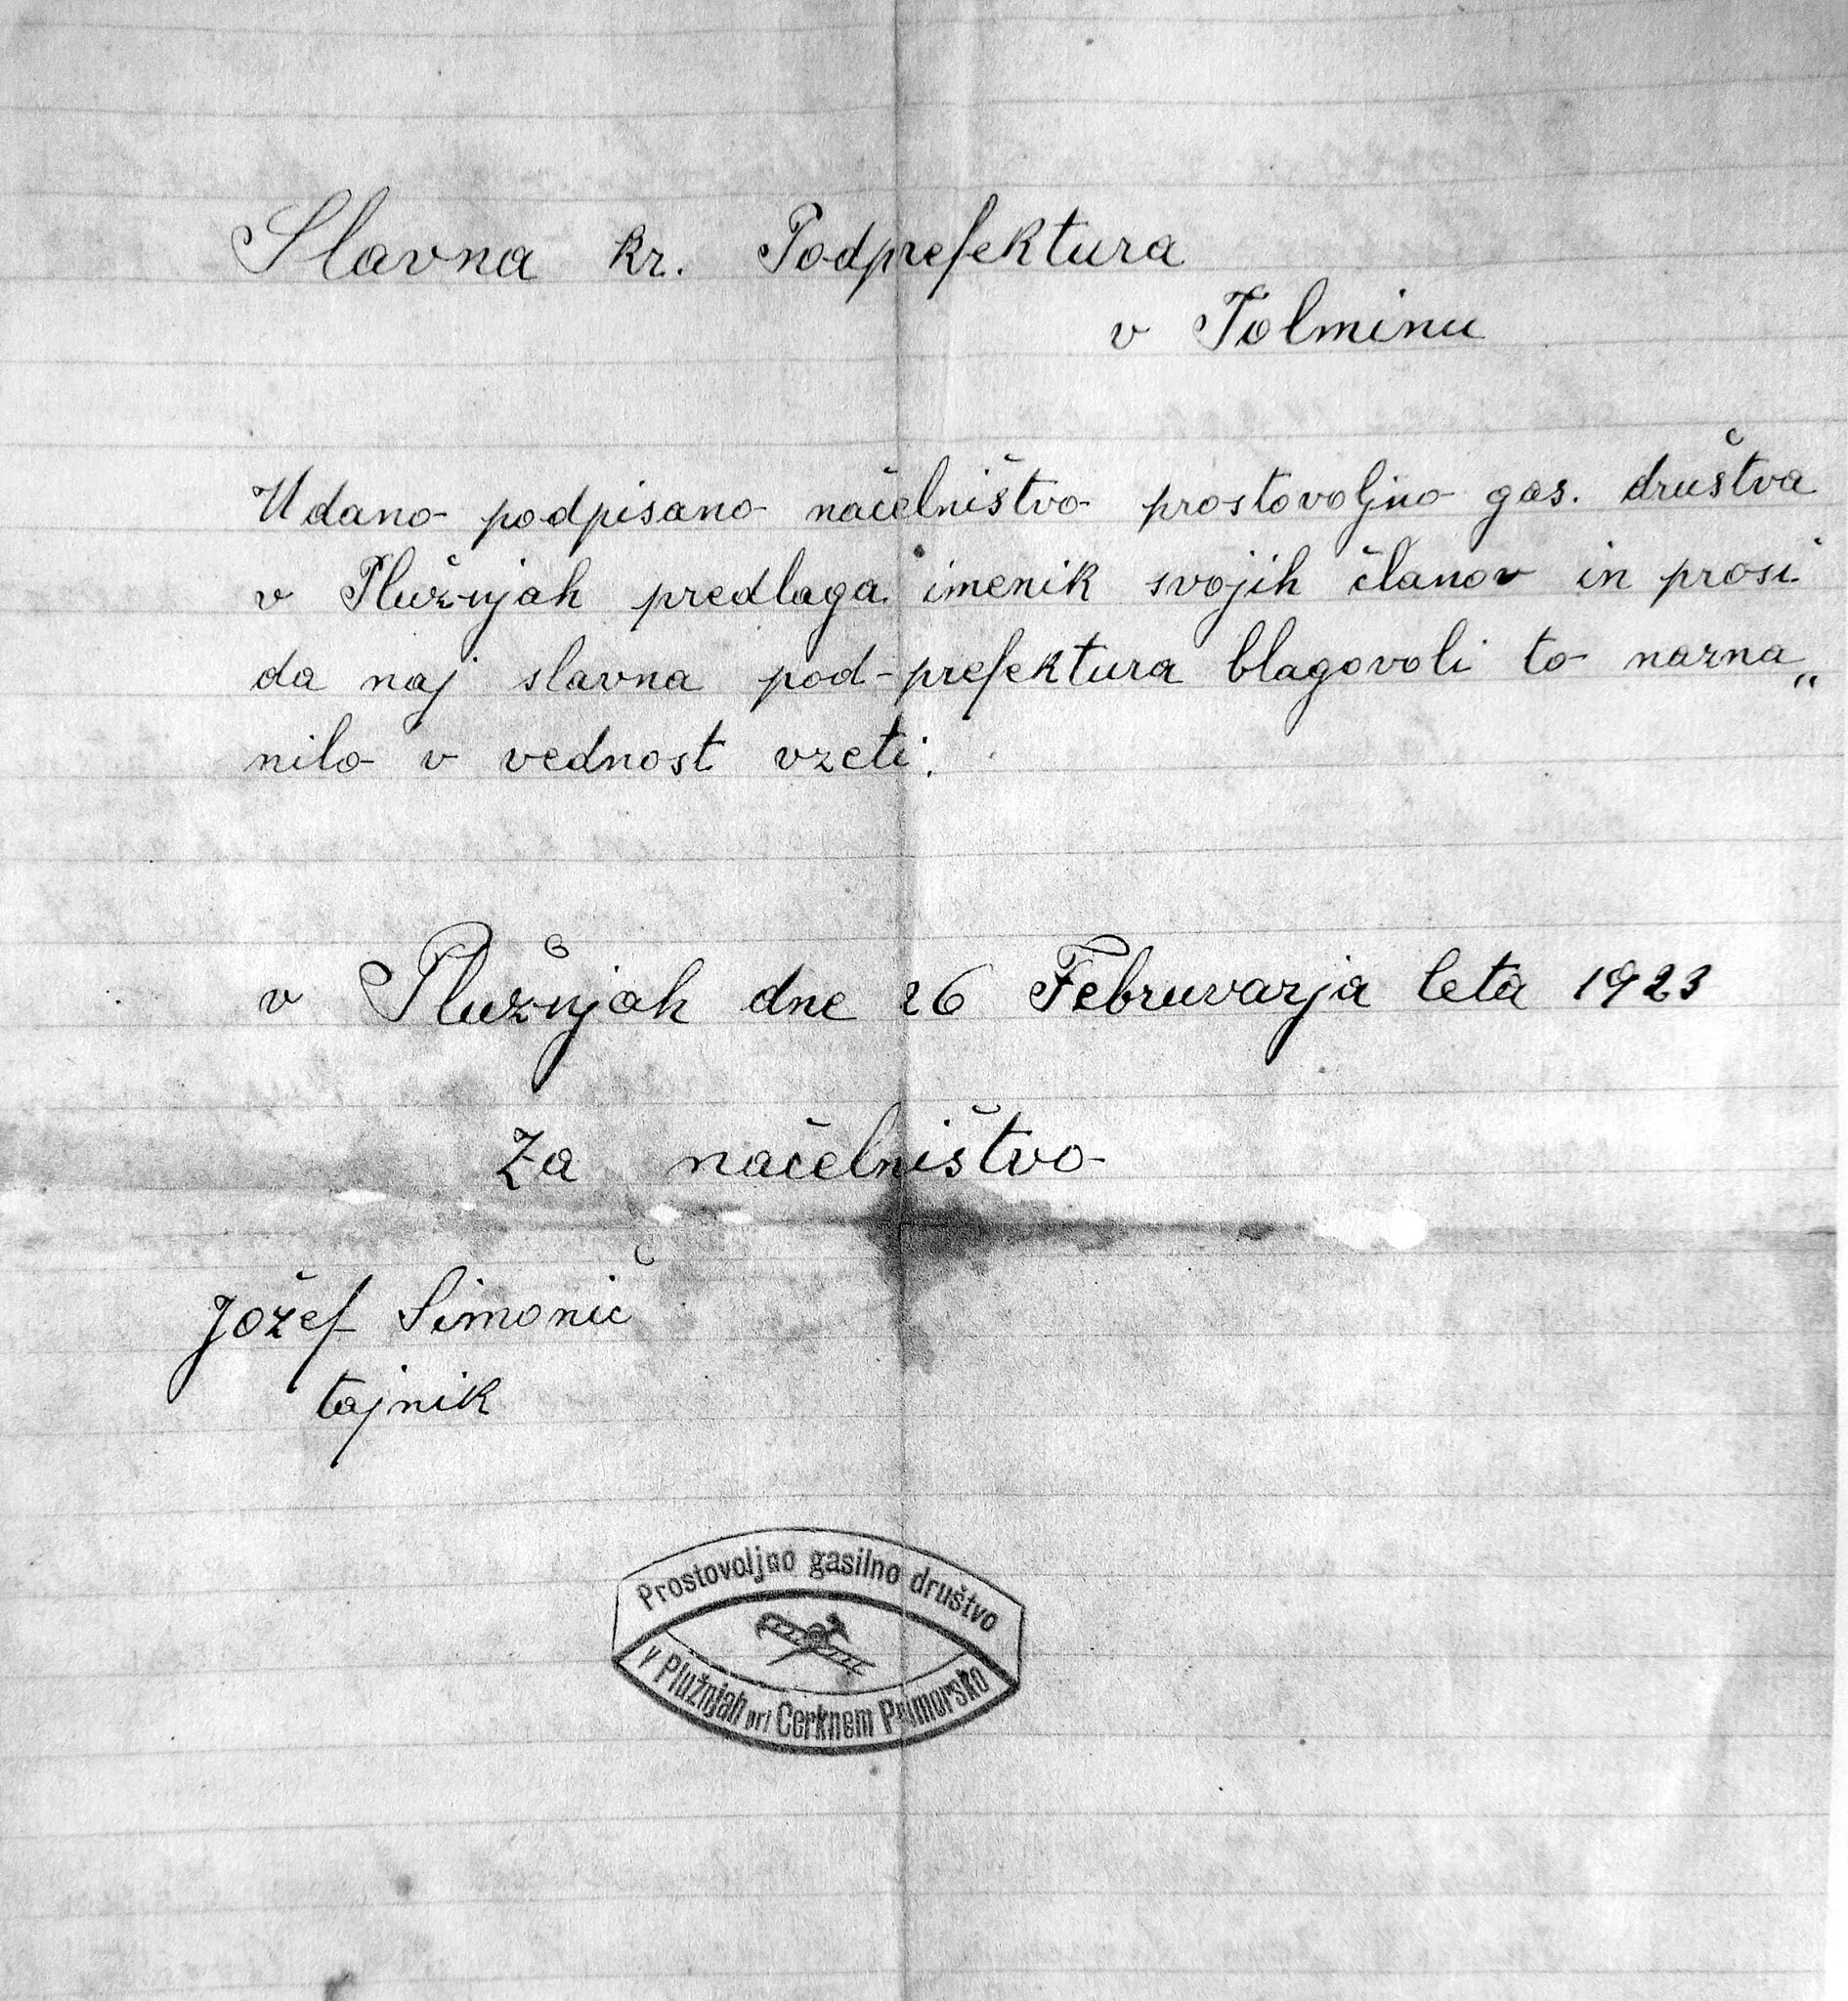 Slavna kr. Podprefektura
v Tolminu
Udano podpisano načelništvo prostovoljno gas. društva
v Plužnjah predlaga imenik svojih članov in prosi
da naj slavna pod-prefektura blagovoli to nazna„
nilo v vednost vzeti.
v Plužnjah dne 26 Februvarja leta 1923
Za načelništvo
Jožef Simonič
tajnik
Prostovoljno gasilno društvo
v Plužnjah pri Cerknem Primorsko